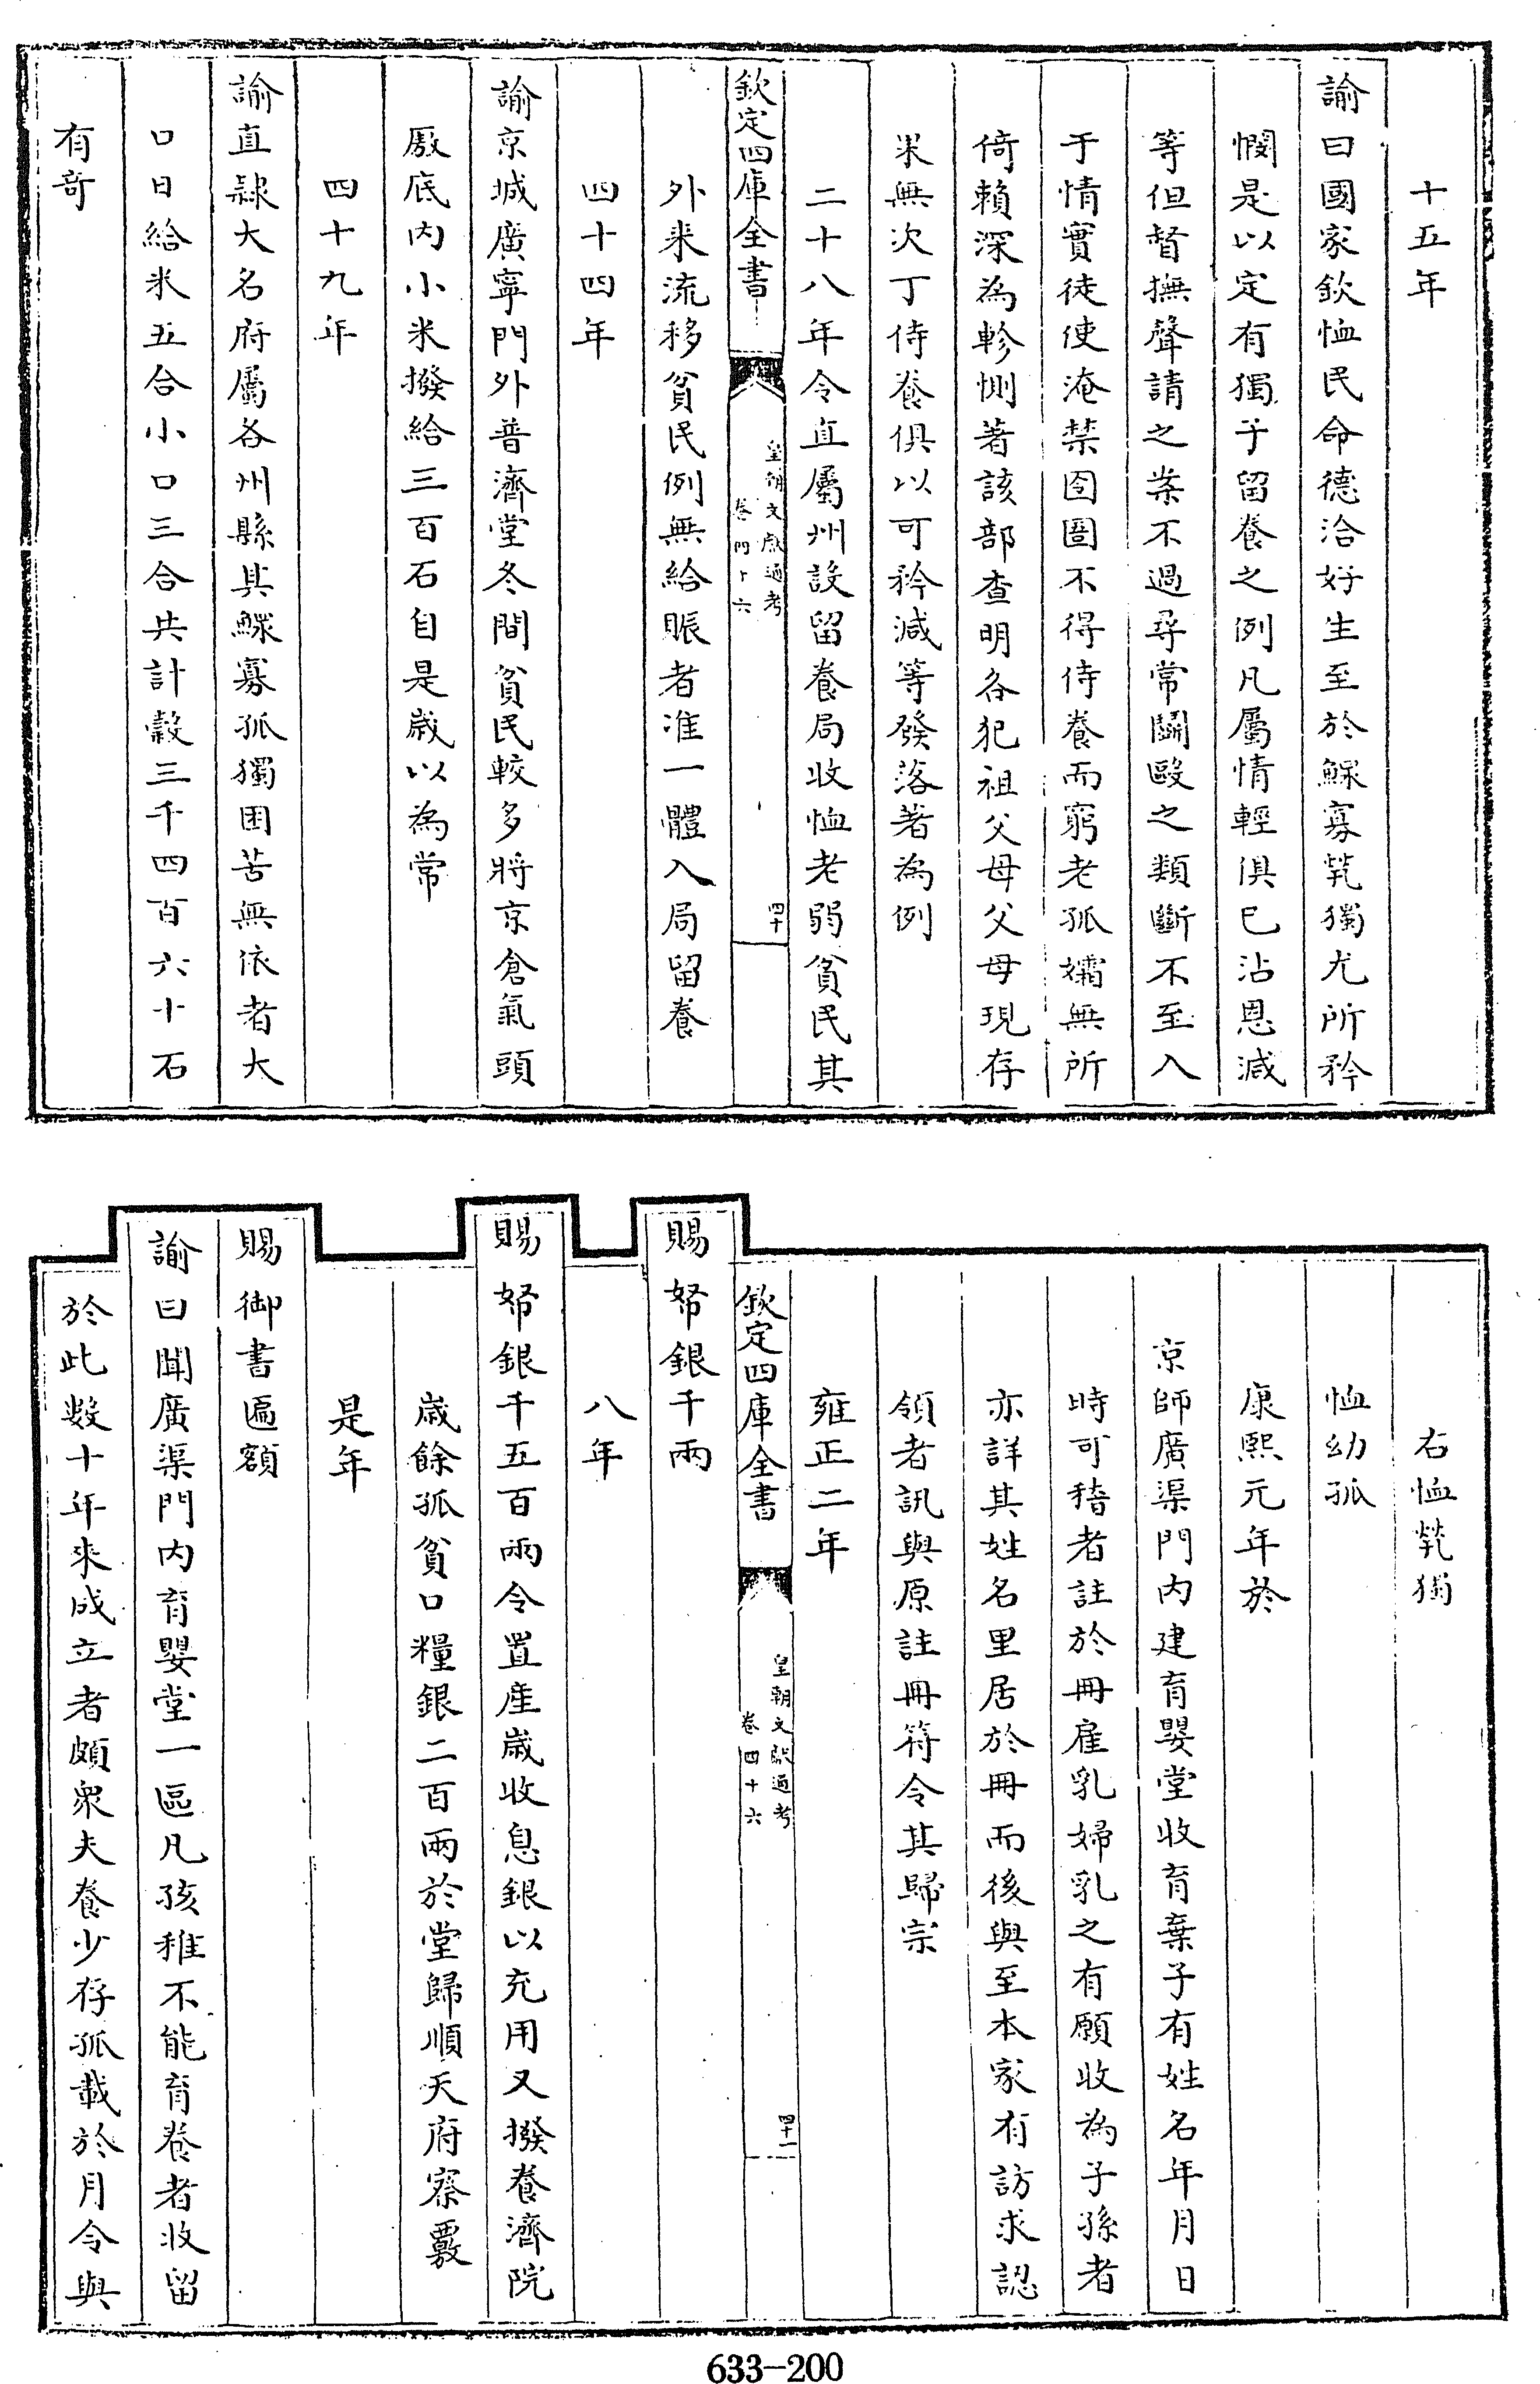 十五年
諭曰國家欽恤民命德洽好生至於鰥寡煢獨尤所矜
憫是以定有獨子留養之例凡屬情輕俱已沾恩減
等但督撫聲請之案不過尋常鬭毆之類斷不至入
于情實徒使淹禁囹圄不得侍養而窮老孤孀無所
倚賴深為軫惻著該部查明各犯祖父母父母現存
果無次丁侍養俱以可矜減等發落著為例
二十八年令直屬州設留養局收恤老弱貧民其
欽定四庫全書
皇朝文獻通考
卷四十六
四十
外來流移貧民例無給賑者准一體入局留養
四十四年
諭京城廣寧門外普濟堂冬間貧民較多將京倉氣頭
廒底內小米撥給三百石自是歲以為常
四十九年
諭直隸大名府屬各州縣其鰥寡孤獨困苦無依者大
口日給米五合小口三合共計穀三千四百六十石
有奇
右恤煢獨
恤幼孤
康熙元年於
京師廣渠門內建育嬰堂收育棄子有姓名年月日
時可稽者註於冊雇乳婦乳之有願收為子孫者
亦詳其姓名里居於冊而後與至本家有訪求認
領者訊與原註冊符令其歸宗
雍正二年
欽定四庫全書
皇朝文獻通考
卷四十六
四十一
賜帑銀千兩
八年
賜帑銀千五百兩令置產歲收息銀以充用又撥養濟院
歲餘孤貧口糧銀二百兩於堂歸順天府察覈
是年
賜御書匾額
諭曰聞廣渠門內育嬰堂一區凡孩稚不能育養者收留
於此數十年來成立者頗衆夫養少存孤載於月令與
633-200